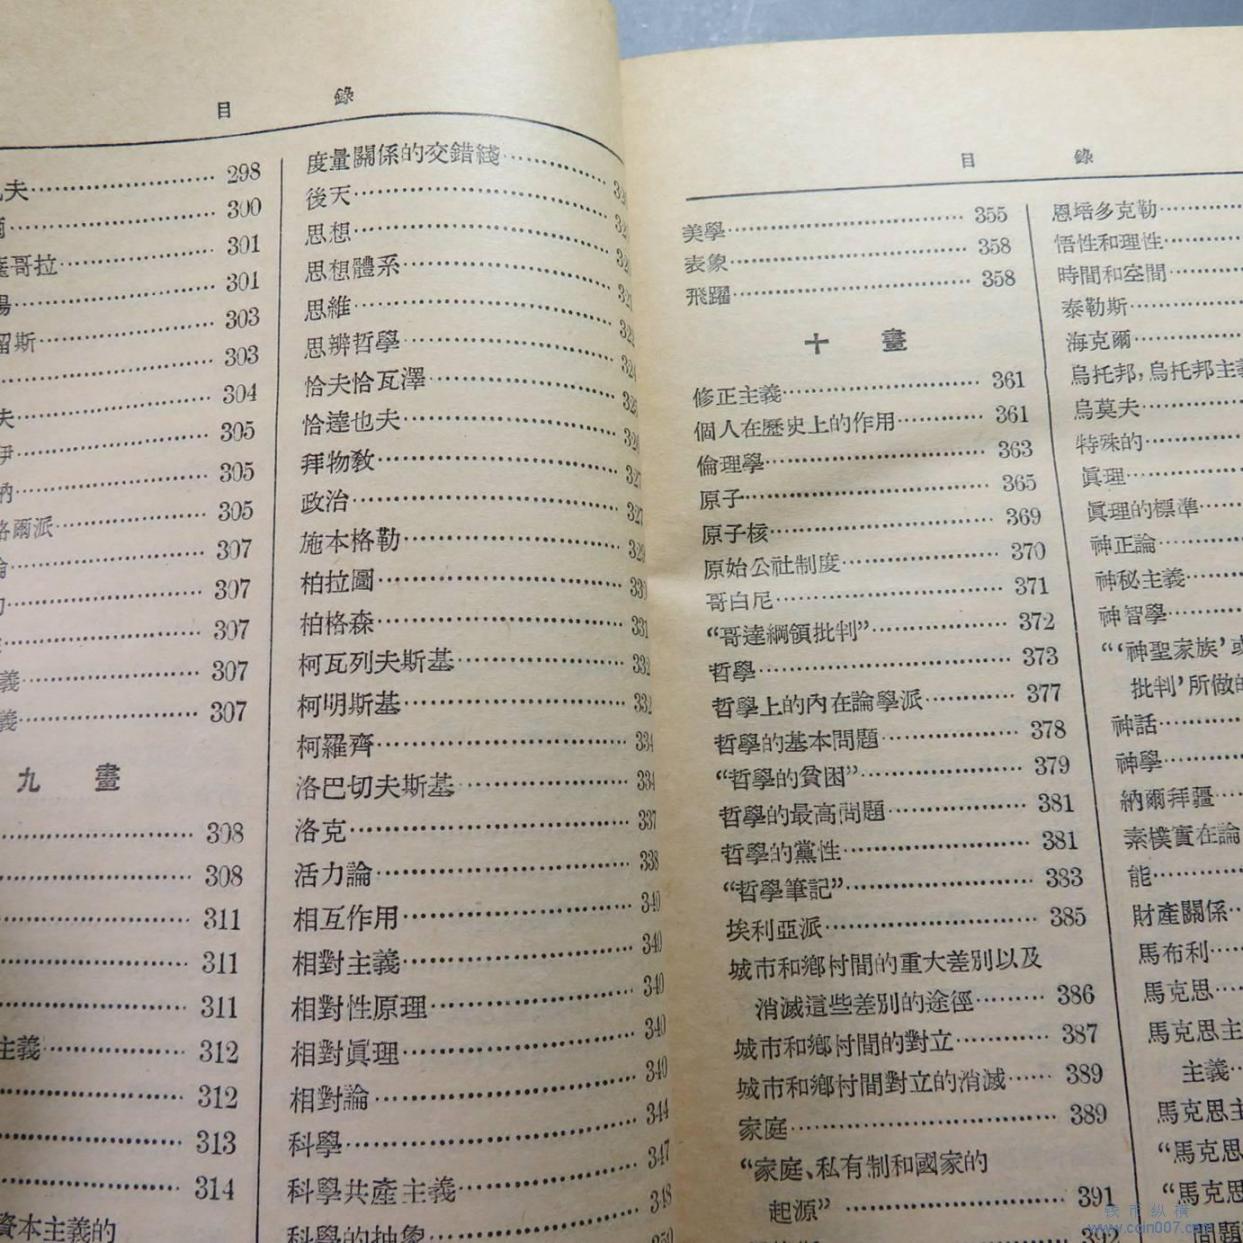 目 錄
夫 298
300
哥拉 301
301
留斯 303
303
夫 304
305
305
爾派 305
307
307
307
義 307
義 307
九 畫
308
308
311
311
311
主義 312
312
313
314
資本主義的
度量關係的交錯綫
後天
思想
思想體系
思維
思辨哲學
恰夫恰瓦澤
恰達也夫
拜物教
政治
施本格勒
柏拉圖
柏格森 331
柯瓦列夫斯基
柯明斯基
柯羅齊 334
洛巴切夫斯基 334
洛克 337
活力論 338
相互作用 340
相對主義 340
相對性原理 340
相對眞理 340
相對論 340
科學 344
科學共產主義 347
科學的抽象 348
目 錄
美學 355
表象 358
飛躍 358
十 畫
修正主義 361
個人在歷史上的作用 361
倫理學 363
原子 365
原子核 369
原始公社制度 370
哥白尼 371
“哥達綱領批判” 372
哲學 373
哲學上的內在論學派 377
哲學的基本問題 378
“哲學的貧困” 379
哲學的最高問題 381
哲學的黨性 381
“哲學筆記” 383
埃利亞派 385
城市和鄉村間的重大差別以及
消滅這些差別的途徑 386
城市和鄉村間的對立 387
城市和鄉村間對立的消滅 389
家庭 389
“家庭、私有制和國家的
起源” 391
392
恩培多克勒
悟性和理性
時間和空間
泰勒斯
海克爾
烏托邦，烏托邦主義
烏莫夫
特殊的
眞理
眞理的標準
神正論
神秘主義
神智學
“‘神聖家族’或
批判’所做的
神話
神學
納爾拜疆
素樸實在論
能
財產關係
馬布利
馬克思
馬克思主
主義
馬克思主
“馬克思
“馬克思
問題
钱币纵横
www.coin007.com